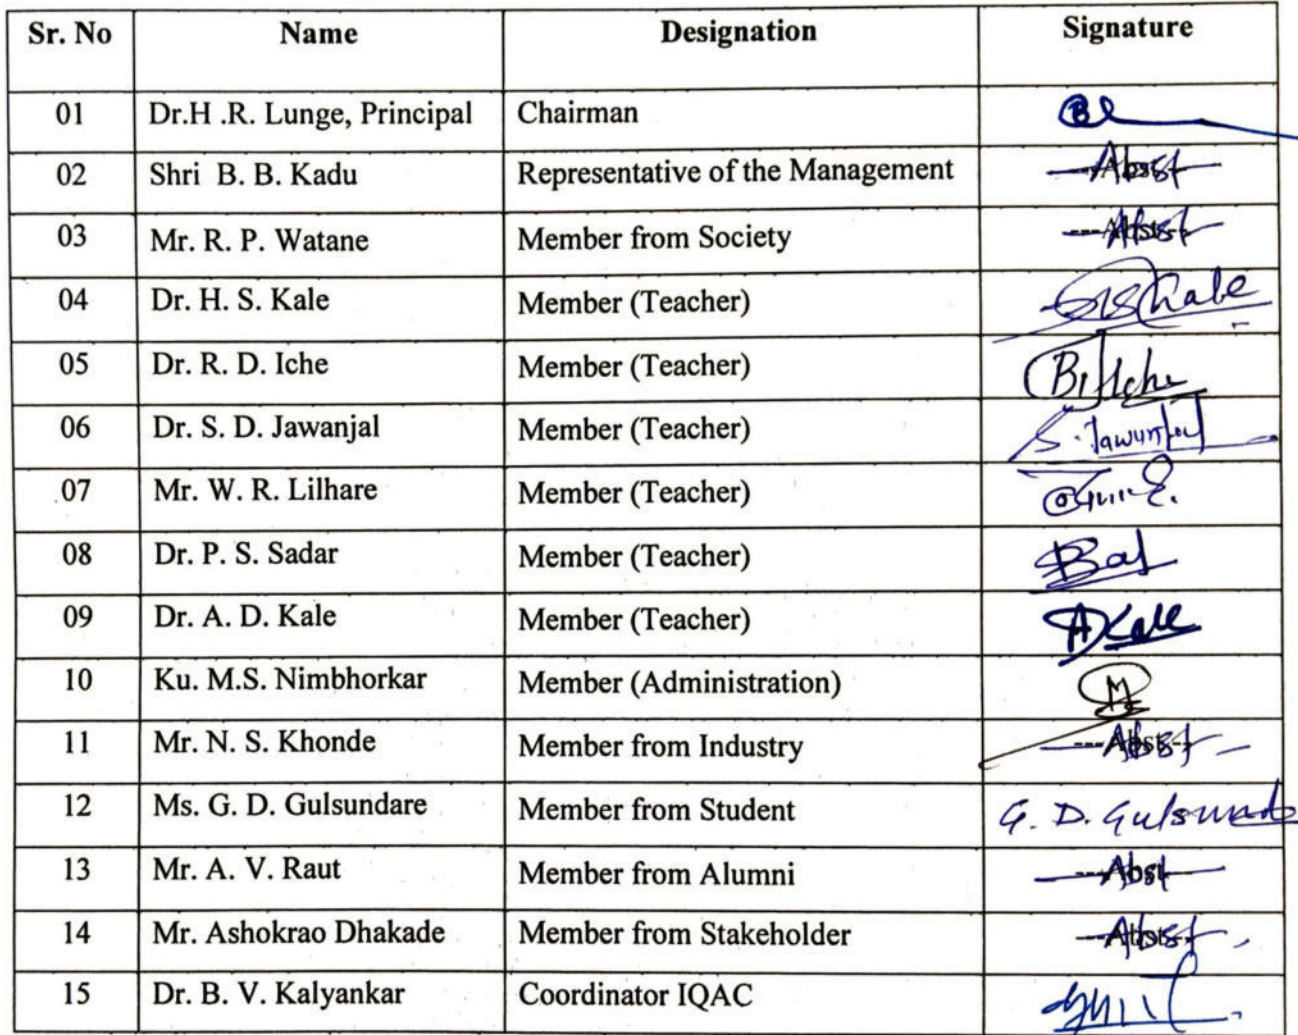 Sr. No Name Designation Signature
01 Dr.H .R. Lunge, Principal Chairman
02 Shri B. B. Kadu Representative of the Management Absst
03 Mr. R. P. Watane Member from Society
04 Dr. H. S. Kale Member (Teacher)
05 Dr. R. D. Iche Member (Teacher)
06 Dr. S. D. Jawanjal Member (Teacher)
07 Mr. W. R. Lilhare Member (Teacher)
08 Dr. P. S. Sadar Member (Teacher)
09 Dr. A. D. Kale Member (Teacher) ADKale
10 Ku. M.S. Nimbhorkar Member (Administration)
11 Mr. N. S. Khonde Member from Industry
12 Ms. G. D. Gulsundare Member from Student G. D.
13 Mr. A. V. Raut Member from Alumni ---Abst---
14 Mr. Ashokrao Dhakade Member from Stakeholder
15 Dr. B. V. Kalyankar Coordinator IQAC